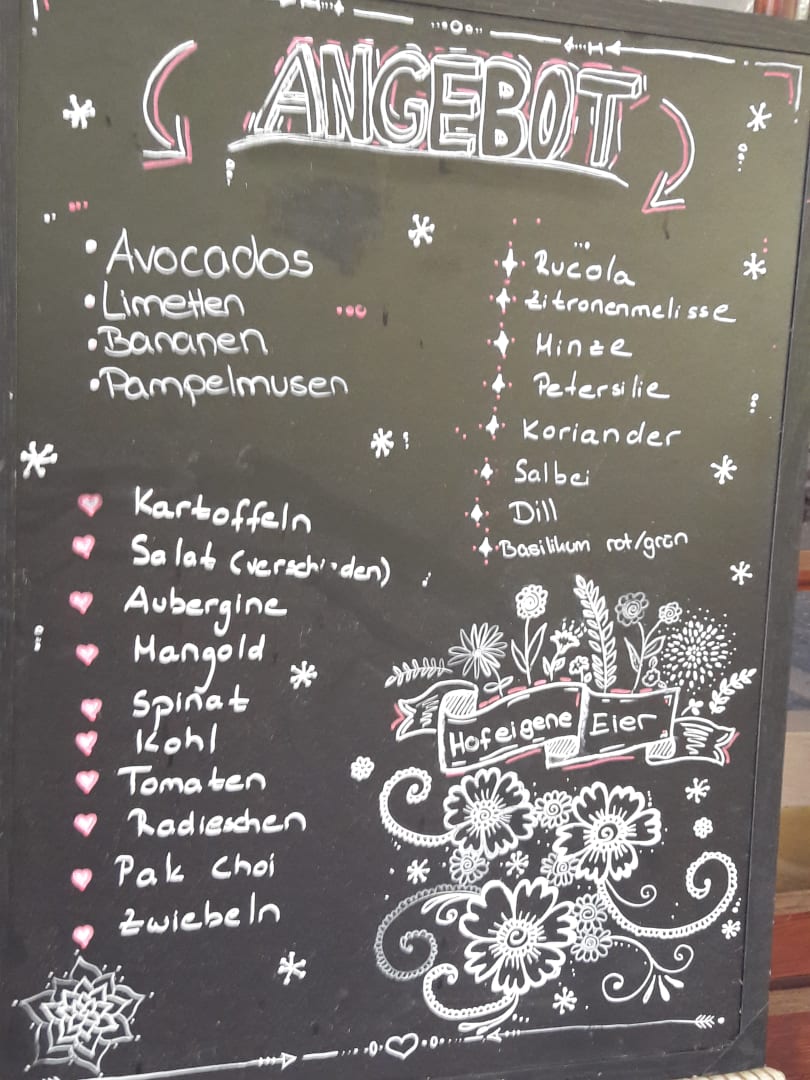 ANGEBOT
Avocados
Limetten
Bananen
Pampelmusen
Rucola
Zitronenmelisse
Minze
Petersilie
Koriander
Salbei
Dill
Basilikum rot/grün
Kartoffeln
Salat (verschieden)
Aubergine
Mangold
Spinat
Kohl
Tomaten
Radieschen
Pak Choi
Zwiebeln
Hofeigene Eier